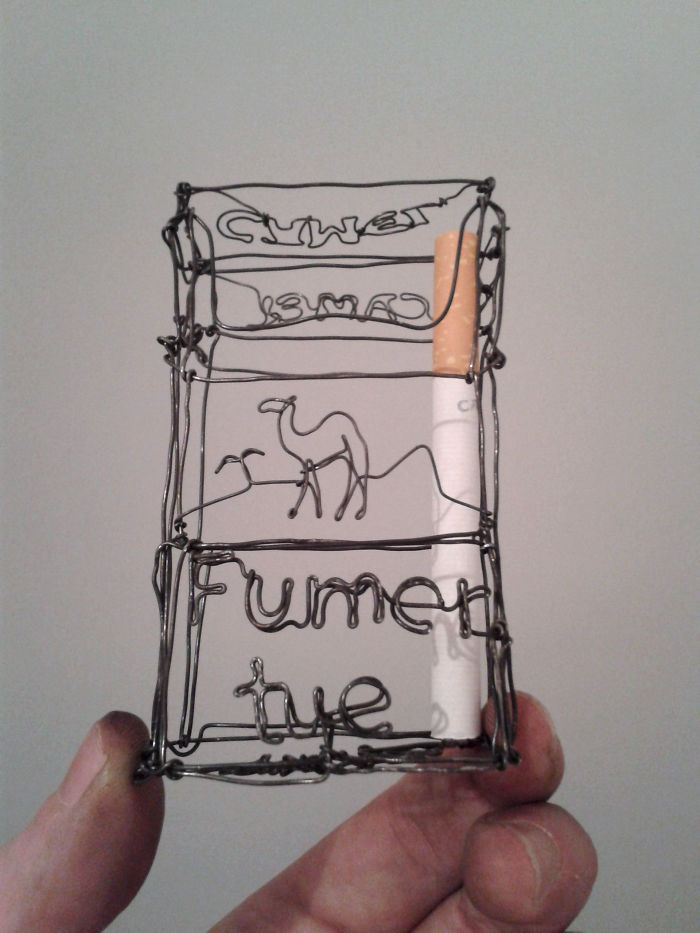 CAMEL
CAMEL
Fumer
tue